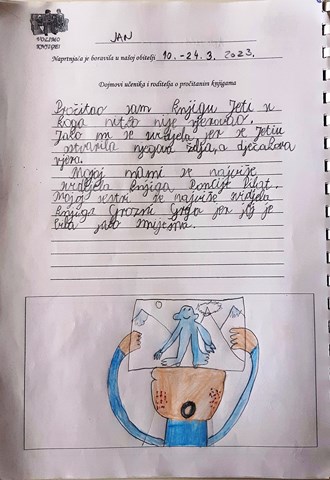 VOLIMO
KNJIGE!
JAN
Naprtnjača je boravila u našoj obitelji 10.-24.3.2023.
Dojmovi učenika i roditelja o pročitanim knjigama
Pročitao sam knjigu Jeti u
koga nitko nije vjerovao.
Jako mi se svidjela jer se Jetiu
ostvarila njegova želja, a dječakova
vjera.
Mojoj mami se najviše
svidjela knjiga Poncije Pilat.
Mojoj sestri se najviše svidjela
knjiga Grozni Grga jer joj je
bila jako smiješna.